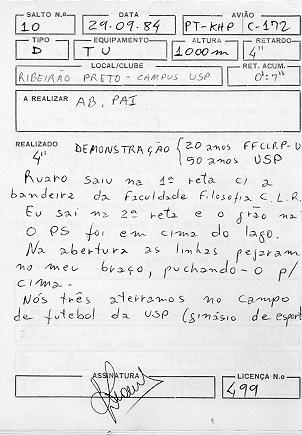 SALTO N.º DATA AVIÃO
10 29.09.84 PT-KHP C-172
TIPO EQUIPAMENTO ALTURA RETARDO
D T U 1000m 4"
LOCAL/CLUBE RET. ACUM.
RIBEIRÃO PRETO - CAMPUS USP 0:7"
A REALIZAR AB, PAI
REALIZADO DEMONSTRAÇÃO { 20 anos FFCLRP-U
4" 50 anos USP
Ruaro saiu na 1ª reta c/ a
bandeira da Faculdade Filosofia C.L.R.
Eu saí na 2ª reta e o grão na
O PS foi em cima do lago.
Na abertura as linhas pejaram
no meu braço, puchando-o p/
cima.
Nós três aterramos no campo
de futebol da USP (ginásio de esport
ASSINATURA LICENÇA N.º
499